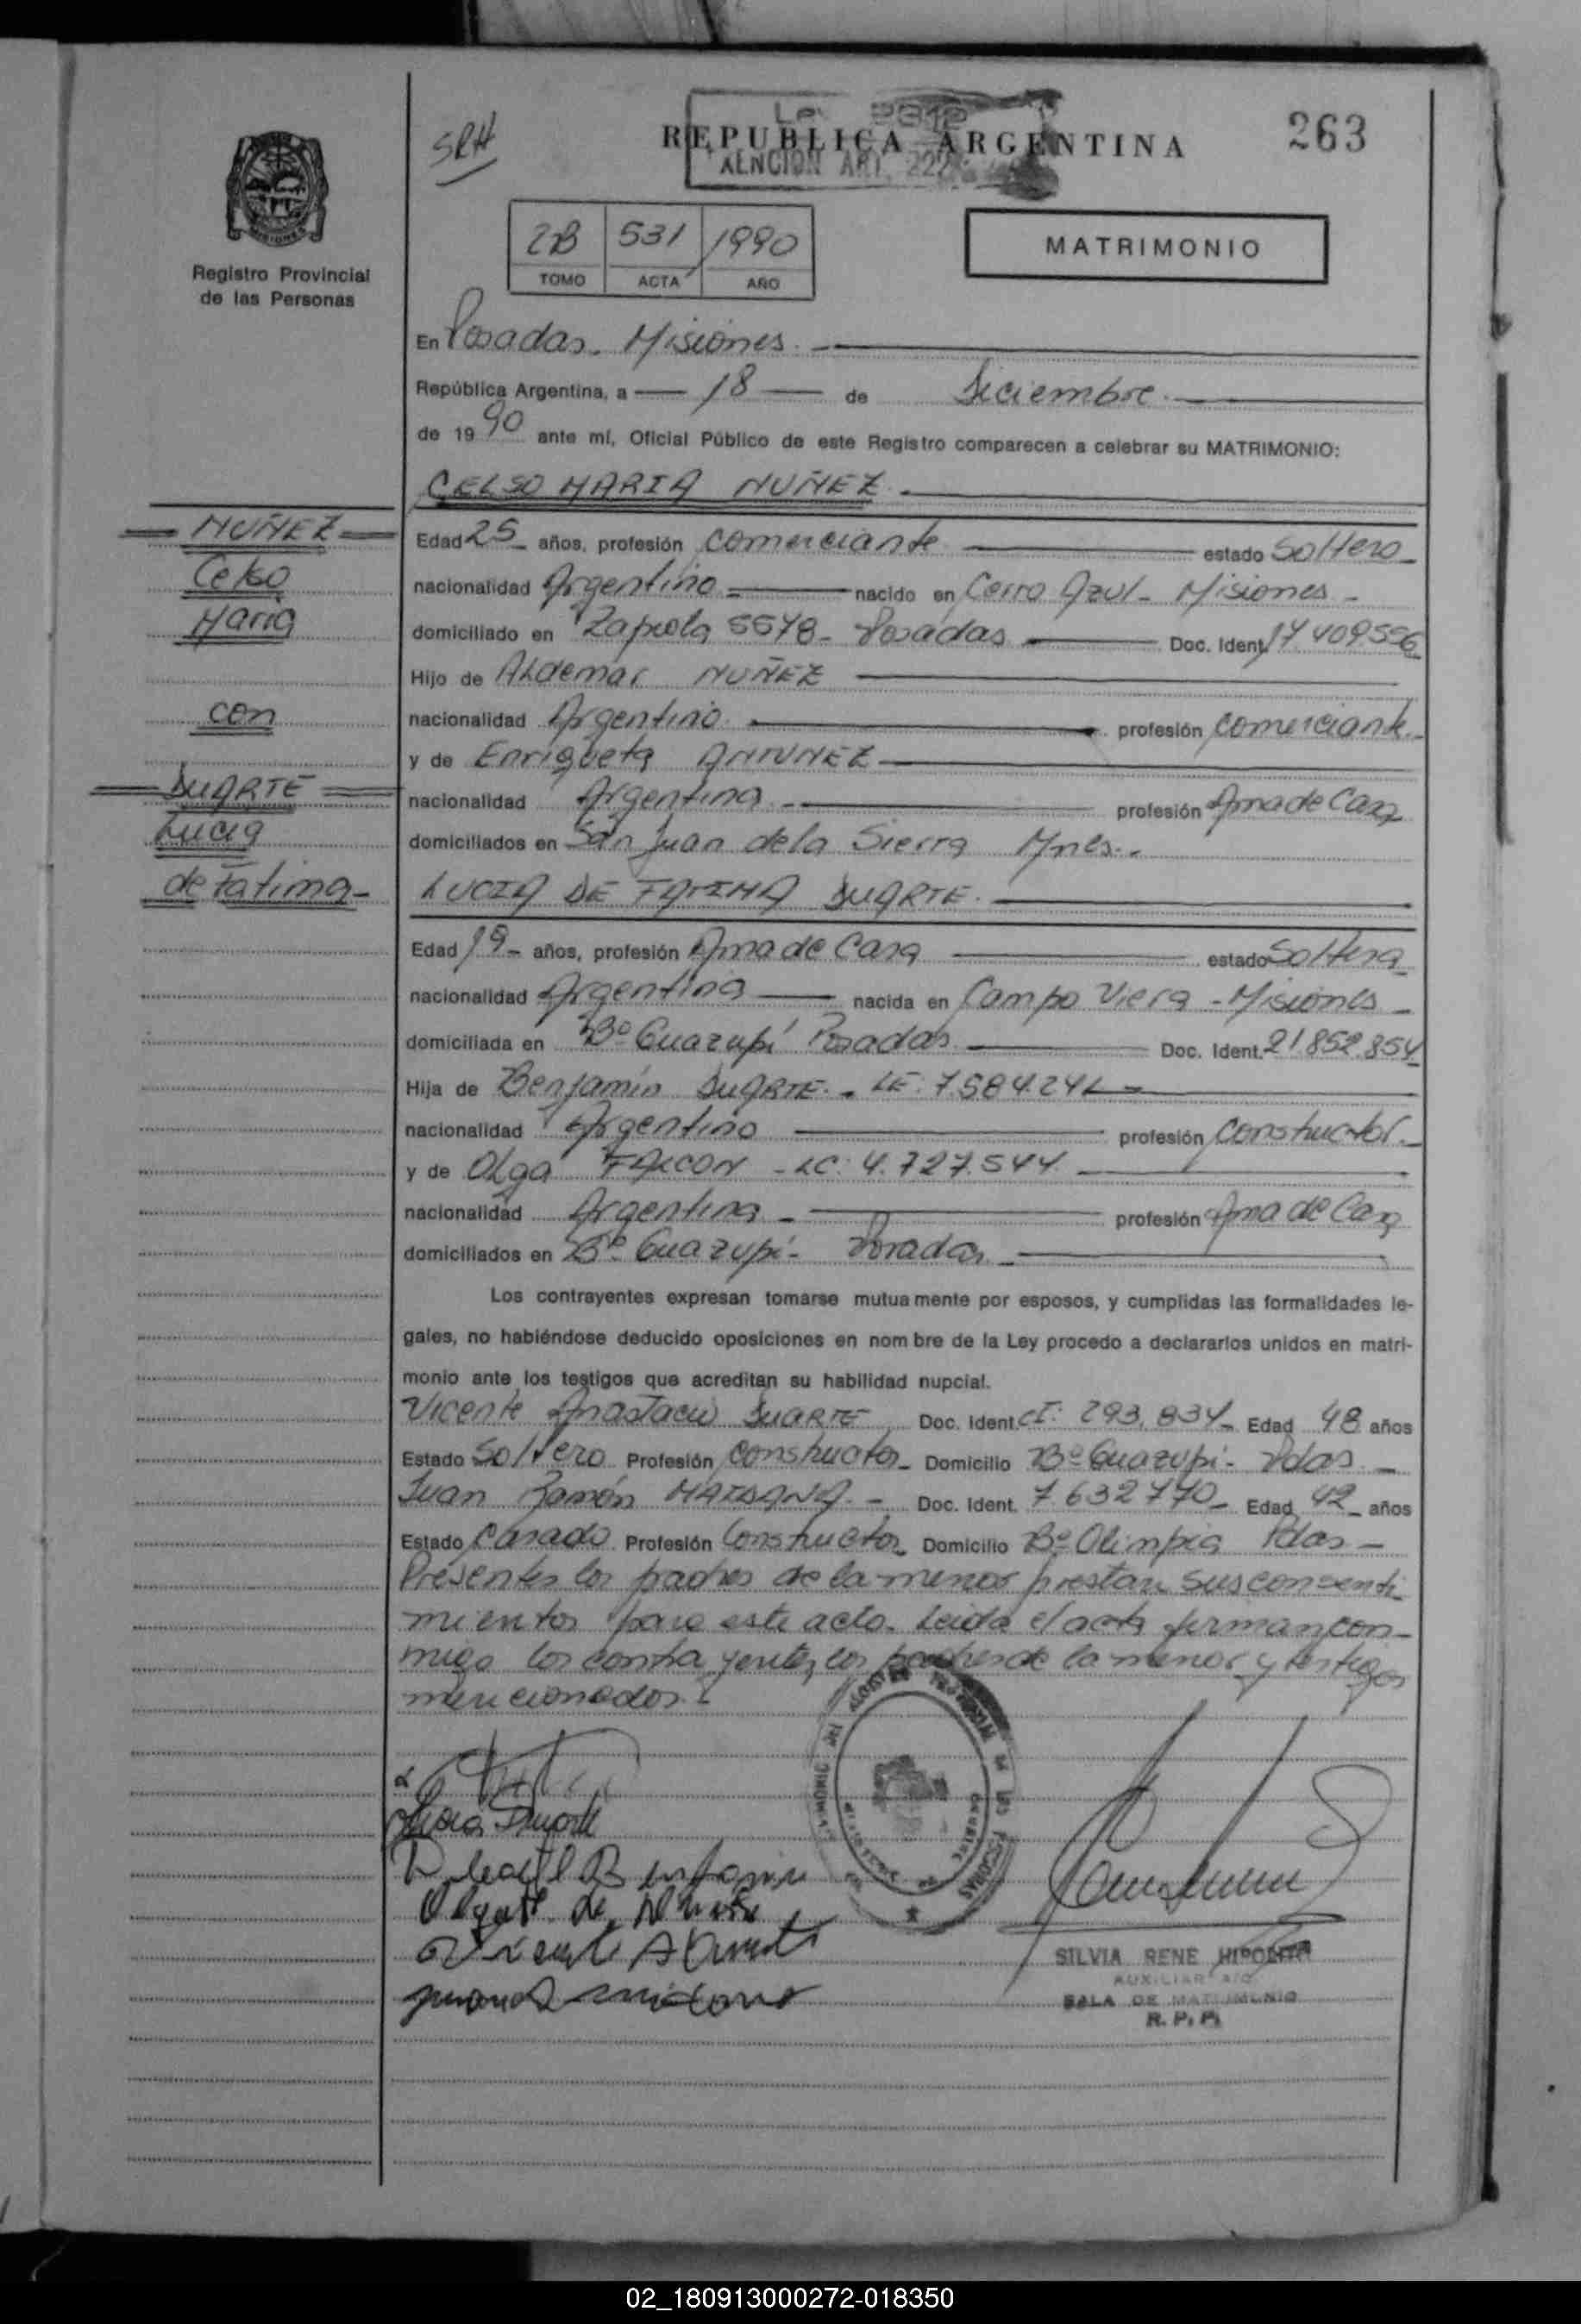 263
SRH
REPUBLICA ARGENTINA
MISIONES
Registro Provincial
de las Personas
2B 531 1990
TOMO ACTA AÑO
MATRIMONIO
En Posadas. Misiones.
República Argentina, a 18 de Diciembre.
de 1990 ante mí, Oficial Público de este Registro comparecen a celebrar su MATRIMONIO:
CELSO MARIA NUÑEZ.
NUÑEZ
Celso
Maria
con
DUARTE
Lucia
de Fatima
Edad 25 años, profesión comerciante estado Soltero
nacionalidad Argentino nacido en Cerro Azul - Misiones
domiciliado en Zapiola 5578 - Posadas Doc. Ident. 17.409.556
Hijo de Aldemar NUÑEZ
nacionalidad Argentino profesión comerciante
y de Enriqueta ANTUNEZ
nacionalidad Argentina profesión Ama de Casa
domiciliados en San Juan de la Sierra Mnes.
LUCIA DE FATIMA DUARTE.
Edad 19 años, profesión Ama de Casa estado Soltera
nacionalidad Argentina nacida en Campo Viera - Misiones
domiciliada en Bº Guazupí Posadas Doc. Ident. 21.852.854
Hija de Benjamín DUARTE. - LE: 7.584.242
nacionalidad Argentino profesión Constructor.
y de Olga FALCON - LC: 4.727.544
nacionalidad Argentina profesión Ama de Casa
domiciliados en Bº Guazupí - Posadas
Los contrayentes expresan tomarse mutuamente por esposos, y cumplidas las formalidades le-
gales, no habiéndose deducido oposiciones en nombre de la Ley procedo a declararlos unidos en matri-
monio ante los testigos que acreditan su habilidad nupcial.
Vicente Anastacio DUARTE Doc. Ident. CI: 293.834 Edad 48 años
Estado Soltero Profesión Constructor Domicilio Bº Guazupí - Pdas
Juan Ramón MAIDANA. Doc. Ident. 7.632770 Edad 42 años
Estado Casado Profesión Constructor Domicilio Bº Olimpia Pdas
Presentes los padres de la menor prestan sus consenti-
mientos para este acto. Leida el acta firman con-
migo los contrayentes, los padres de la menor y testigos
mencionados.
Lucia Duarte
SILVIA RENE HIPOLITO
AUXILIAR A/C
SALA DE MATRIMONIO
R. P. P.
02_180913000272-018350